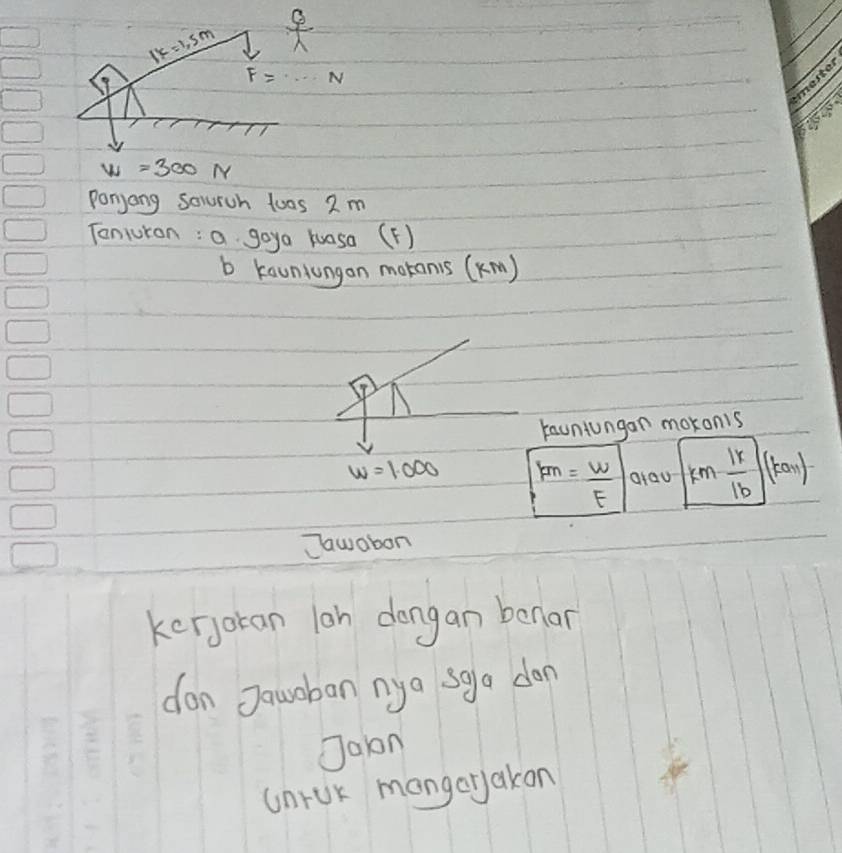 lk=1,5m
F = .... N
W = 300 N
Panjang saluruh tuas 2 m
Tantukan : a. gaya kuasa (F)
b kauntungan mekanis (KM)
W = 1.000
kauntungan mekanis
km = W/F atau km lk/lb (kali)
Jawaban
kerjakan lah dengan benar
dan Jawaban nya saja dan
Jalan
Untuk mengerjakan
emester